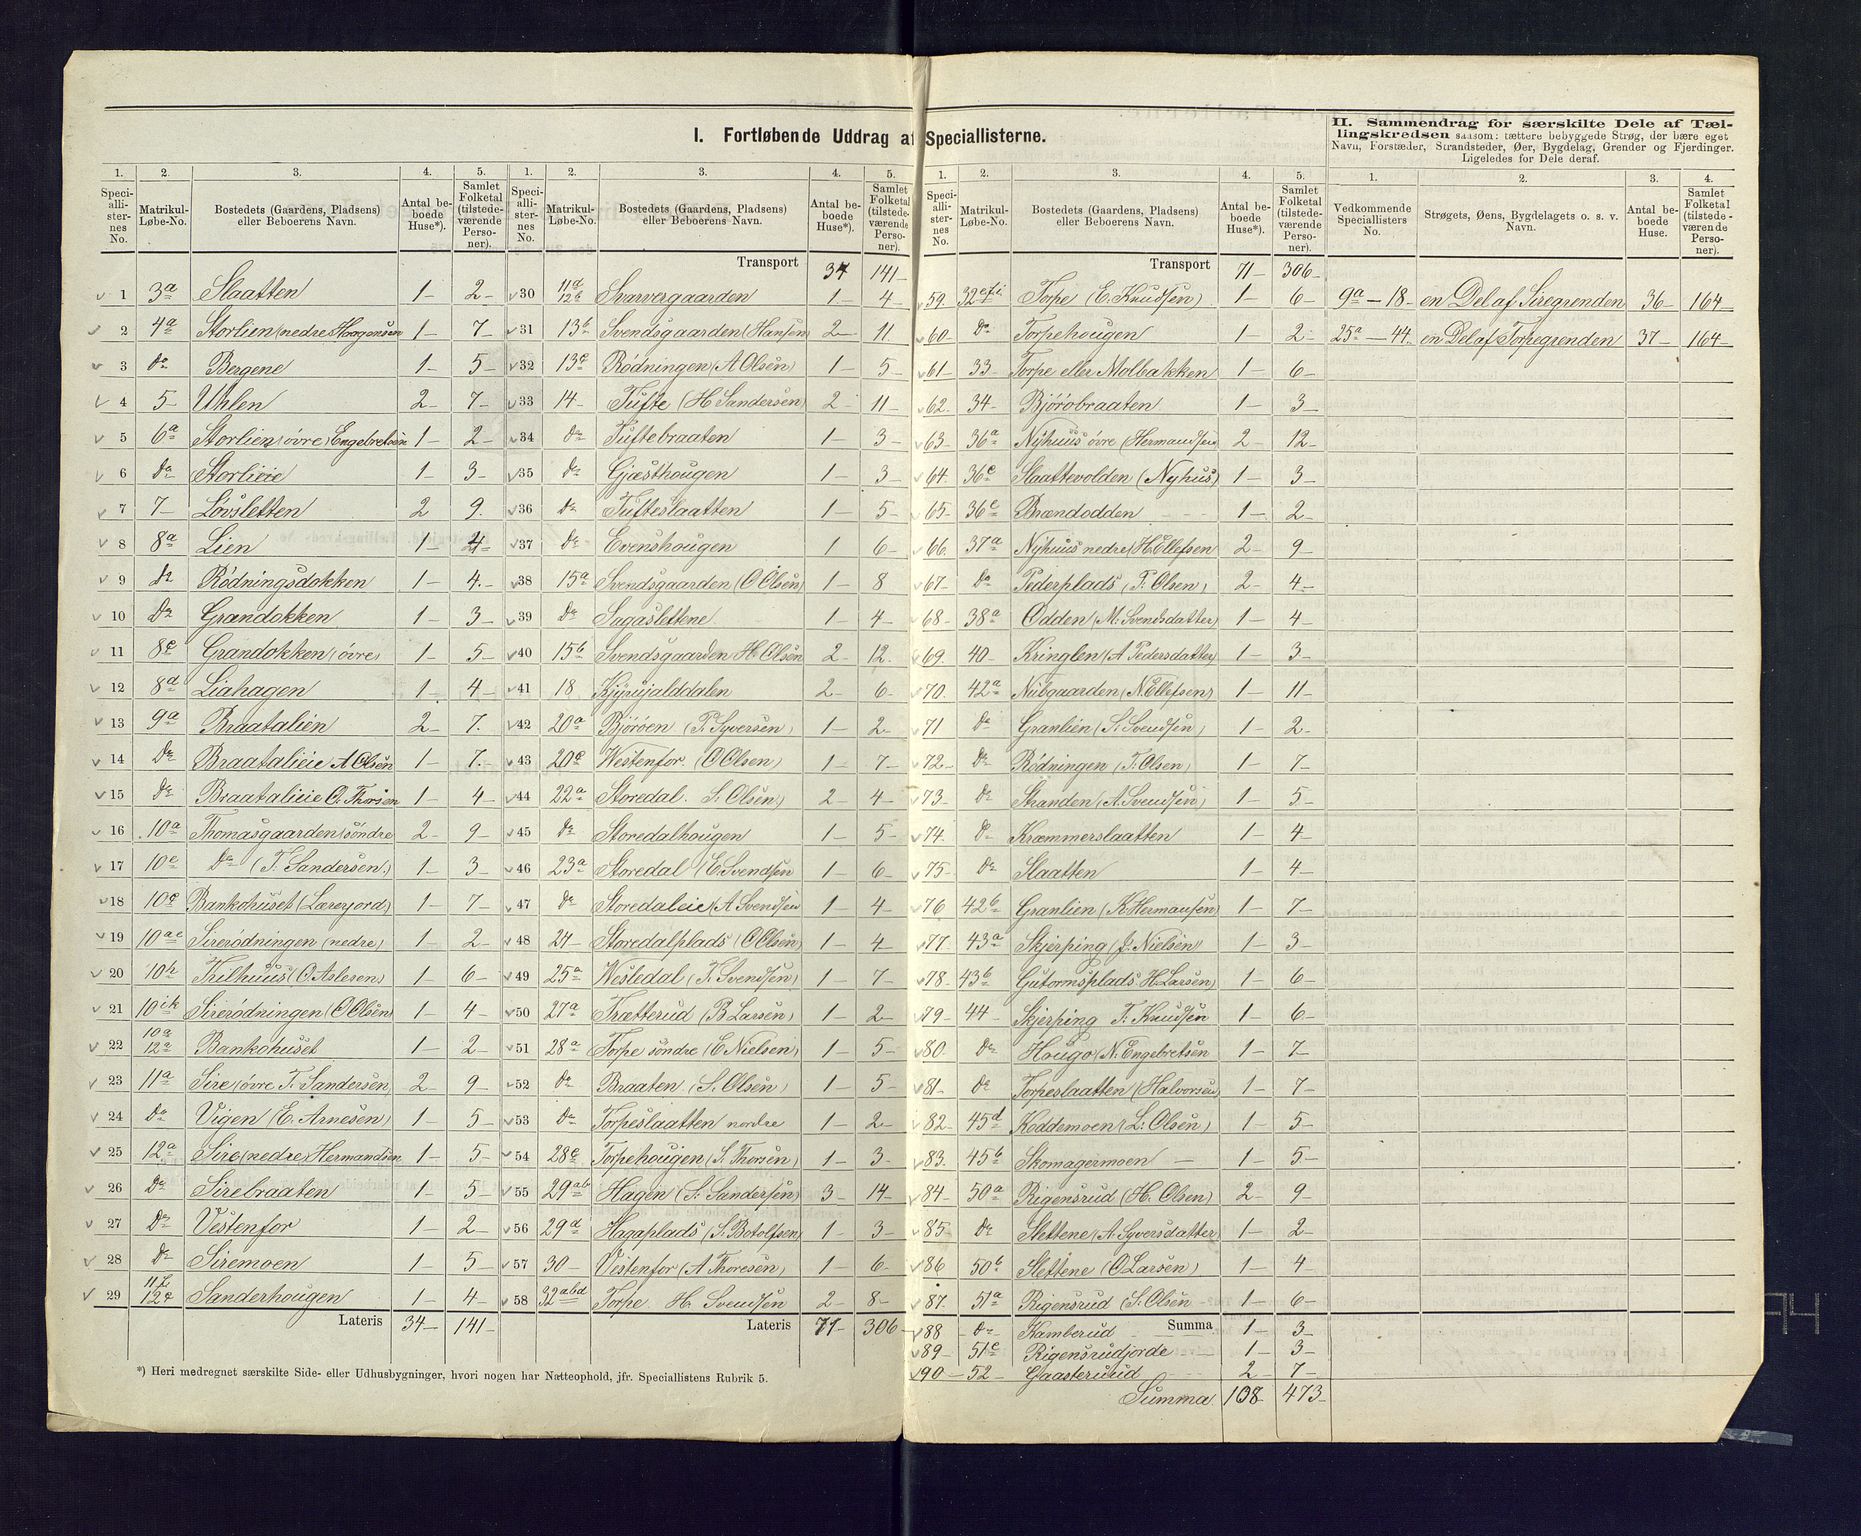 I. Fortløbende Uddrag af Speciallisterne.
II. Sammendrag for særskilte Dele af Tællingskredsen saasom: tættere bebyggede Strøg, der bære eget
Navn, Forstæder, Strandsteder, Øer, Bygdelag, Grender og Fjerdinger.
Ligeledes for Dele deraf.
1. 2. 3. 4. 5.
Speciallisternes No. Matrikul-Løbe-No. Bostedets (Gaardens, Pladsens) eller Beboerens Navn. Antal beboede Huse*). Samlet Folketal (tilstedeværende Personer).
1 3a Slaatten 1 2
2 4a Storlien (nedre) Haagensen 1 7
3 Do Bergene 1 5
4 5 Uhlen 2 7
5 6a Storlien (øvre) Engebretsen 1 2
6 Do Storlieie 1 3
7 7 Løvsletten 2 9
8 8a Lien 1 4
9 Do Rødningsdokken 1 4
10 Do Grandokken 1 3
11 8c Grandokken (øvre) 1 5
12 8d Liahagen 1 4
13 9a Braatalien 2 7
14 Do Braatalieie A Olsen 1 7
15 Do Braatalieie O. Thorsen 1 4
16 10a Thomasgaarden (søndre 2 9
17 10e Do (T. Sandersen) 1 3
18 10c Bankohuset (Lærejord) 1 7
19 10ae Sirerødningen (nedre) 1 2
20 10h Trilhuus (O Aslesen) 1 6
21 10ik Sirerødningen (O Olsen) 1 4
22 10a 12a Bankohuset 1 2
23 11a Sire (øvre T. Sandersen) 2 9
24 Do Vigen (E. Arnesen) 1 5
25 12a Sire (nedre) Hermandsen 1 5
26 Do Sirebraaten 1 5
27 Do Vestenfor 1 2
28 Do Siremoen 1 5
29 12c Sanderhougen 1 4
Lateris 34 141
*) Heri medregnet særskilte Side- eller Udhusbygninger, hvori nogen har Natteophold, jfr. Speciallistens Rubrik 5.
1. 2. 3. 4. 5.
Speciallisternes No. Matrikul-Løbe-No. Bostedets (Gaardens, Pladsens) eller Beboerens Navn. Antal beboede Huse*). Samlet Folketal (tilstedeværende Personer).
Transport 34 141
30 11d 12b Svarvergaarden 1 4
31 13b Svendsgaarden (Hansen) 2 11
32 13c Rødningen (A Olsen) 1 5
33 14 Tufte (H Sandersen) 2 11
34 Do Tuftebraaten 1 3
35 Do Gjæsthougen 1 3
36 Do Tufteslaatten 1 5
37 Do Evenshougen 1 6
38 15a Svendsgaarden (O Olsen) 1 8
39 Do Sagaslettene 1 4
40 15b Svendsgaarden H. Olsen 2 12
41 18 2 6
42 20a Bjøröen (P. Syversen) 1 2
43 20c Westenfor (O Olsen) 1 7
44 22a Storedal S. Olsen) 2 4
45 Do Storedalhougen 1 5
46 23a Storedal (E. Svendsen 1 6
47 Do Storedaleie (A Svendsen 1 4
48 24 Storedalplads (O Olsen) 1 4
49 25a Westedal (T. Svendsen) 1 7
50 27a Trætterud (B Larsen) 1 2
51 28a Torpe søndre (E Nielsen) 1 5
52 Do Braaten (S. Olsen) 1 5
53 Do Torpeslaatten nordre 1 2
54 28c Torpehougen (S. Thorsen) 1 3
55 29ab Hagen (S. Sandersen) 3 14
56 29d Hagaplads (S. Botolfsen) 1 3
57 30 Vestenfor (A Thoresen) 1 6
58 32abd Torpe H. Svendsen 2 8
Lateris 71 306
1. 2. 3. 4. 5.
Speciallisternes No. Matrikul-Løbe-No. Bostedets (Gaardens, Pladsens) eller Beboerens Navn. Antal beboede Huse*). Samlet Folketal (tilstedeværende Personer).
Transport 71 306
59 32efi Torpe (E. Knudsen) 1 6
60 Do Torpehougen 1 2
61 33 Torpe eller Molbakken 1 6
62 34 Bjørobraaten 1 3
63 36a Nyhuus øvre (Hermandsen 2 12
64 36c Slaattevolden (Nyhus) 1 3
65 36c Brændodden 1 2
66 37a Nyhuus nedre (H. Ellefsen 2 9
67 Do Pederplads (T. Olsen) 2 4
68 38a Odden (M. Svendsdatter) 1 4
69 40 Kringlen (A Pedersdatter) 1 3
70 42a Nibgaarden (N. Ellefsen) 1 11
71 Do Granlien (S. Svendsen) 1 2
72 Do Rødningen (T. Olsen) 1 7
73 Do Stranden (A. Svendsen) 1 5
74 Do Kræmmerslaatten 1 4
75 Do Slaatten 1 4
76 42b Granlien (K. Hermansen) 1 7
77 43a Skjerping (J. Nielsen) 1 3
78 43b Gutormsplads H. Larsen) 1 6
79 44 Skjerping T. Knudsen 1 6
80 Do Hougo (N. Engebretsen 1 7
81 Do Torpeslaatten (Halvorsen) 1 7
82 45d Koddemoen (L. Olsen) 1 5
83 45b Skomagermoen 1 5
84 50a Rigensrud (H. Olsen) 2 9
85 Do Slettene (A. Syversdatter 1 2
86 50b Slettene (O Larsen) 1 4
87 51a Rigensrud (S. Olsen 1 6
88 Do Kamberud Summa 1 3
89 51c Rigensrudjorde 1 3
90 52 Gaasterurud 2 7
Summa 108 473
1. 2. 3. 4.
Vedkommende Speciallisters No. Strøgets, Øens, Bygdelagets o. s. v. Navn. Antal beboede Huse. Samlet Folketal (tilstedeværende Personer).
9a — 18 en Del af Siregrenden 36 164
25a — 44 en Del af Torpegrenden 37 164